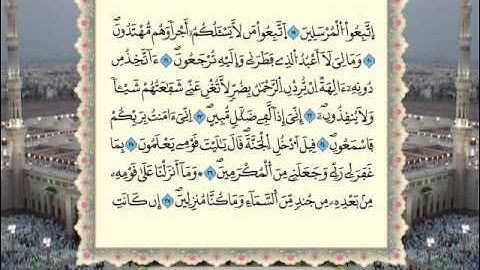 اِتَّبِعُواْ الْمُرْسَلِينَ ۝ اَتَّبِعُواْ مَن لَّا يَسْـَٔلُكُمُۥٓ أَجْرًا وَهُم مُّهْتَدُونَۖ
۝ وَمَا لِيَ لَا أَعْبُدُ الذِے فَطَرَنِے وَإِلَيْهِ تُرْجَعُونَۖ ۝ ءَآتَّخِذُ مِن
دُونِهِۦٓ ءَالِهَةً اِنْ يُّرِدْنِ الرَّحْمَٰنُ بِضُرٍّ لَّا تُغْنِ عَنِّے شَفَٰعَتُهُمْ شَيْـٔاً
وَلَا يُنقِذُونِۦٓۖ ۝ إِنِّيَ إِذاً لَّفِے ضَلَٰلٍ مُّبِينٍۖ ۝ اِنِّيَ ءَامَنتُ بِرَبِّكُمْ
فَاسْمَعُونِۖ ۝ قِيلَ اَدْخُلِ الْجَنَّةَۖ قَالَ يَٰلَيْتَ قَوْمِے يَعْلَمُونَ ۝ بِمَا
غَفَرَ لِے رَبِّے وَجَعَلَنِے مِنَ اَلْمُكْرَمِينَۖ ۝ وَمَا أَنزَلْنَا عَلَىٰ قَوْمِهِۦ
مِنۢ بَعْدِهِۦ مِن جُندٍ مِّنَ اَلسَّمَآءِ وَمَا كُنَّا مُنزِلِينَۖ ۝ إِن كَانَتِ